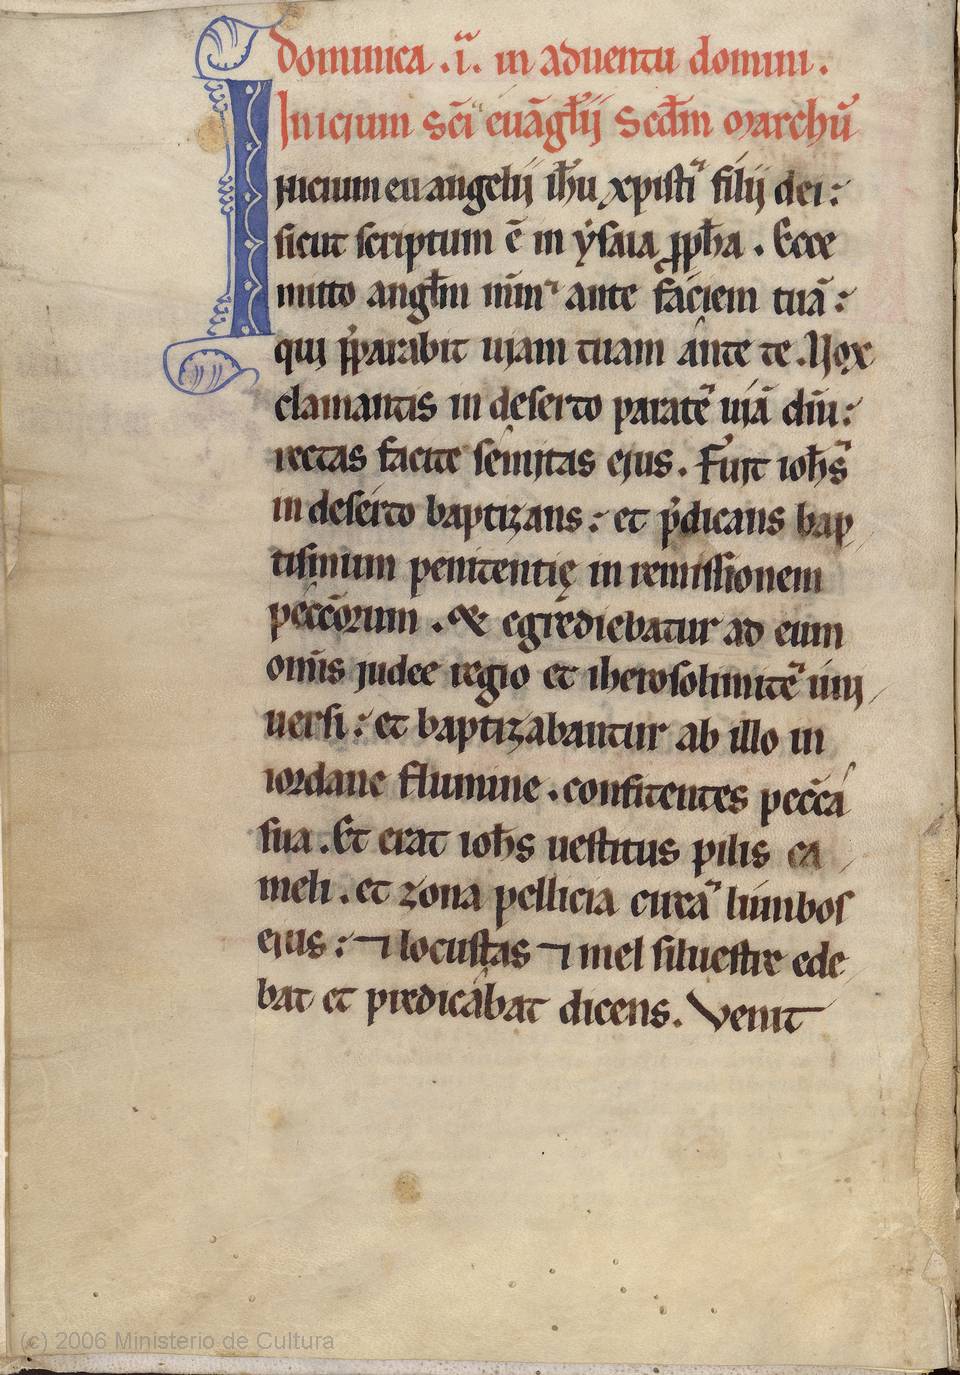 Dominica .iᵃ. in aduentu domini.
Inicium sc̄i euāgl̄ij Scd̄m marchū
Inicium euangelij ih̄u xpisti filij dei:
sicut scriptum ē in ẏsaia ꝓph̄a . Ecce
mitto angl̄m m̄m ante faciem tuā:
qui p̄parabit uiam tuam ante te . Uox
clamantis in deserto parate uiā dn̄i:
rectas facite semitas eius . Fuit ioh̄s
in deserto baptizans: et p̄dicans bap
tismum penitentię in remissionem
pecc̄orum . & egrediebatur ad eum
omīs iudee regio et iherosolimite uni
uersi: et baptizabantur ab illo in
iordane flumine . confitentes pecc̄a
sua . Et erat ioh̄s uestitus pilis ca
meli . et zona pellicia circa lumbos
eius: ⁊ locustas ⁊ mel siluestre ede
bat et predicabat dicens. Venit
(c) 2006 Ministerio de Cultura